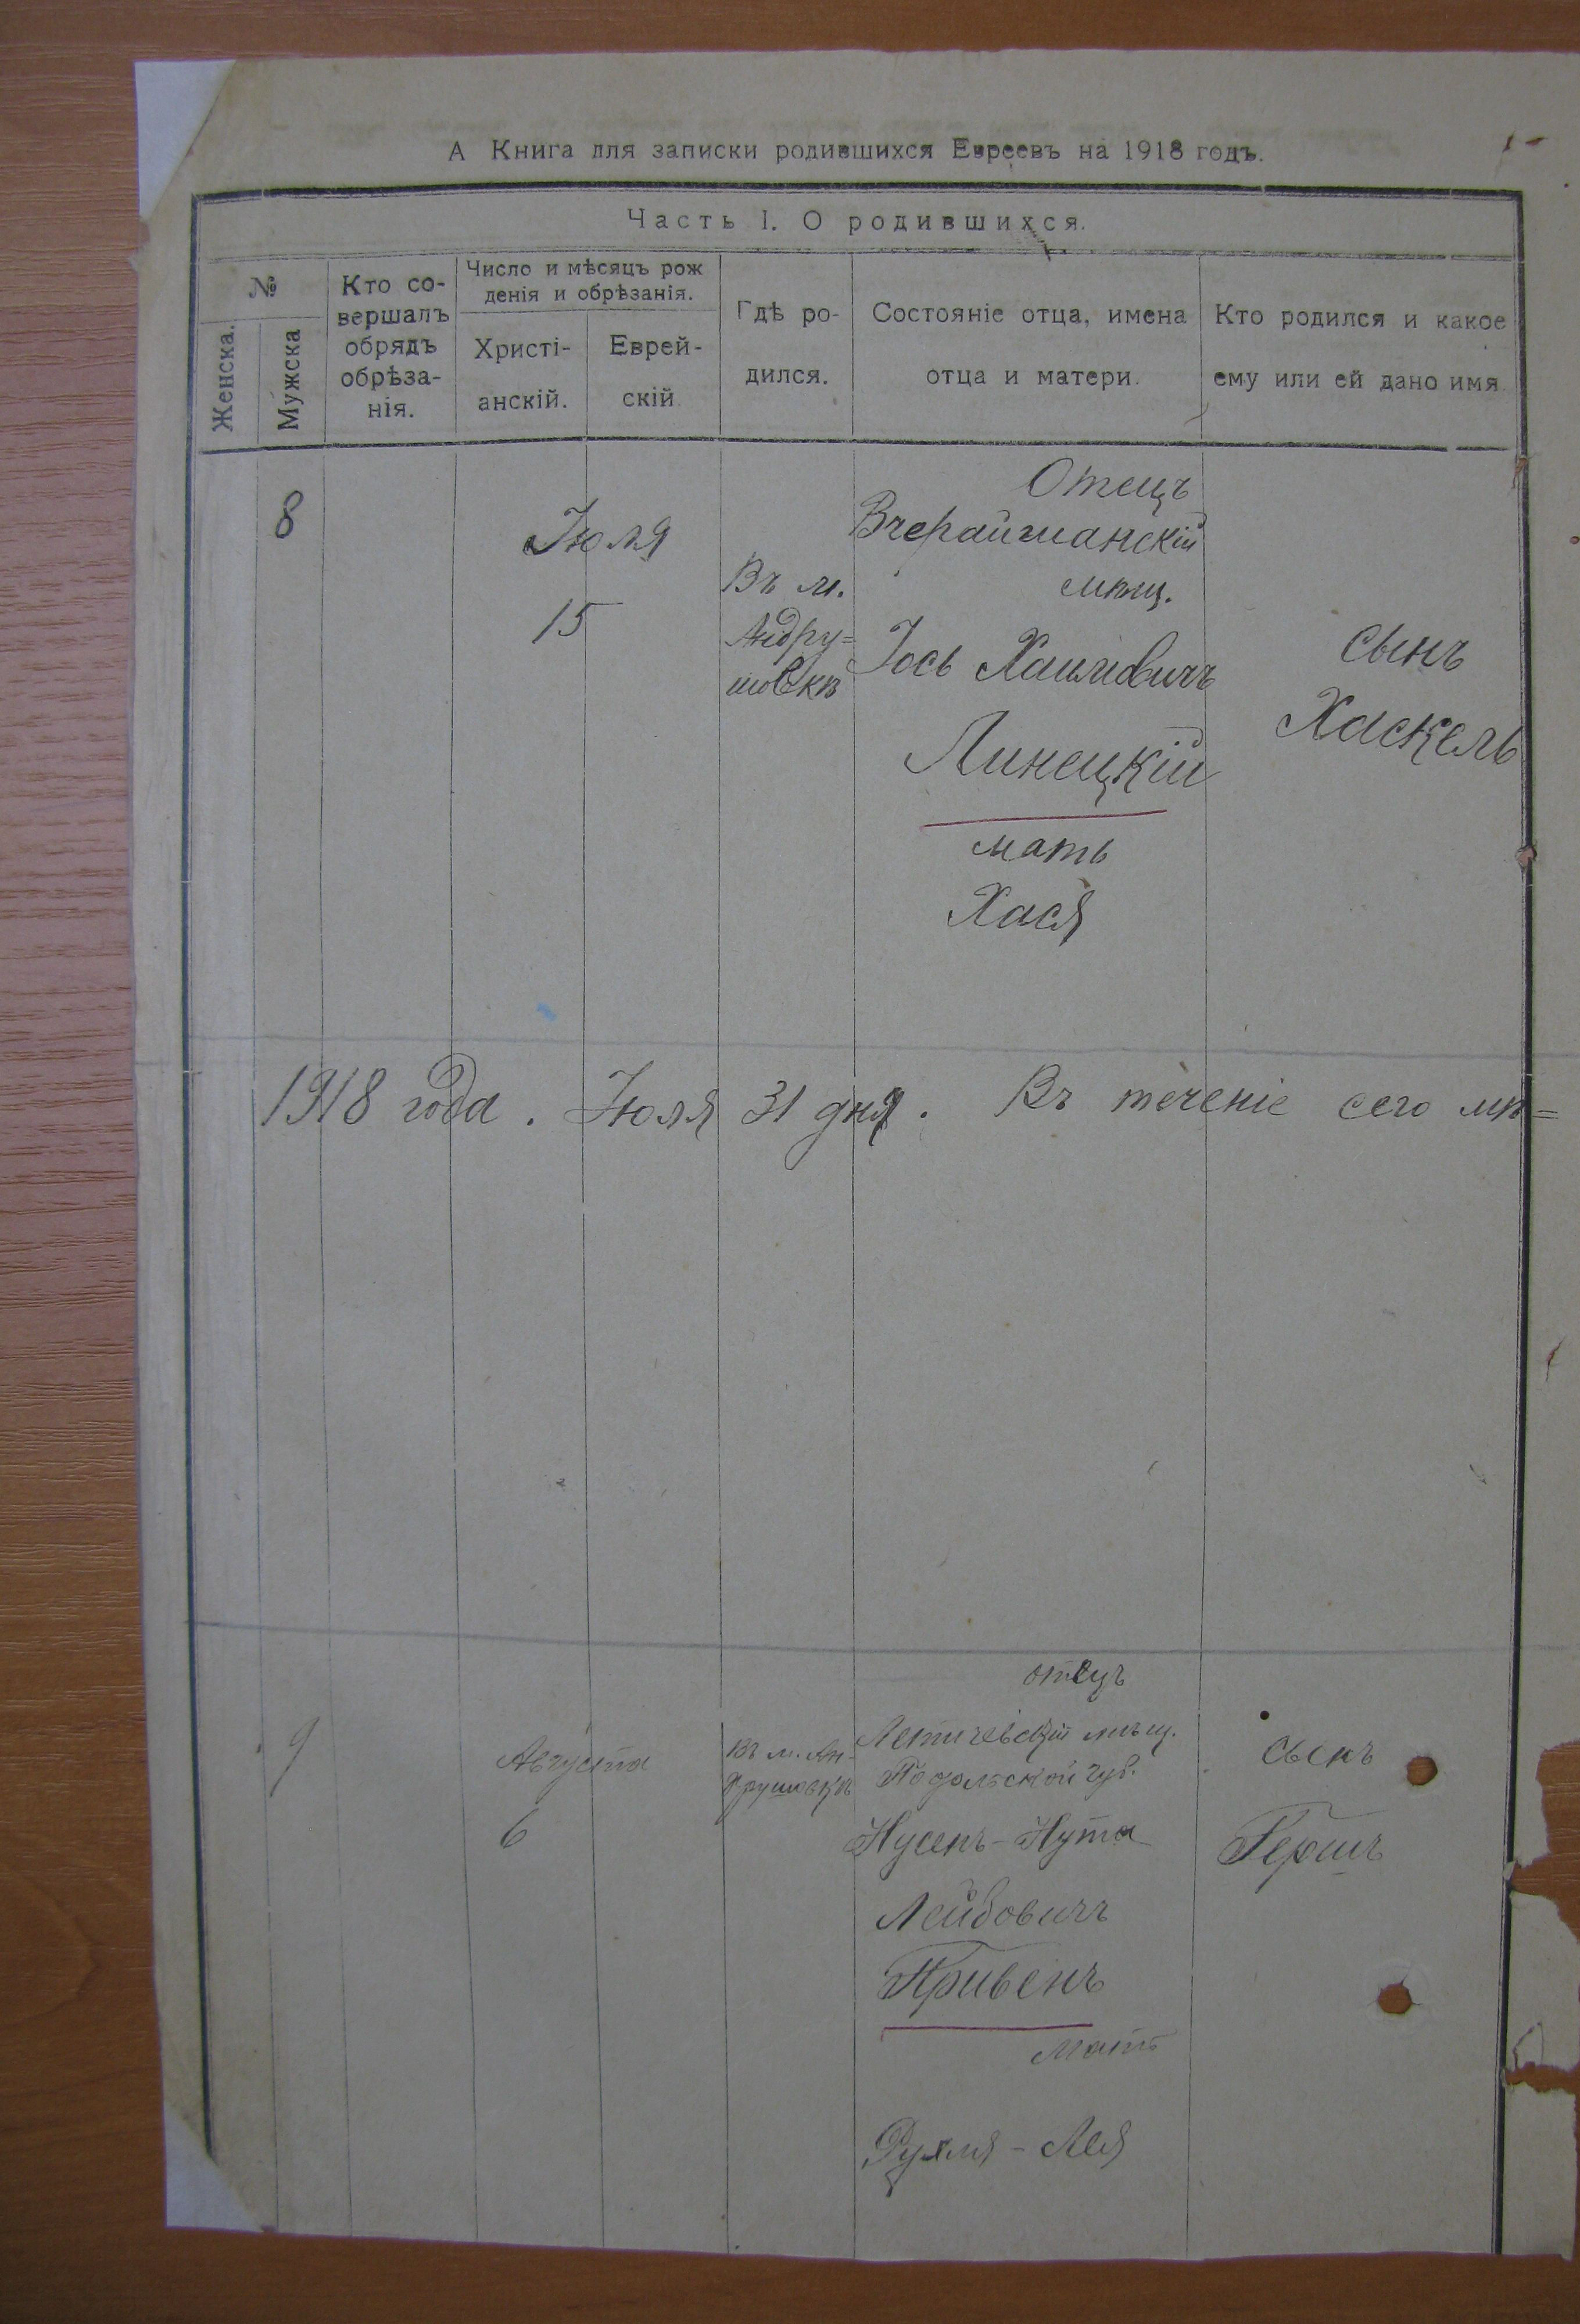 А Книга для записки родившихся Евреевъ на 1918 годъ.
Часть I. О родившихся.
№
Женска.
Мужска
Кто со-
вершалъ
обрядъ
обрѣза-
нія.
Число и мѣсяцъ рож
денія и обрѣзанія.
Христі-
анскій.
Еврей-
скій
Гдѣ ро-
дился.
Состояніе отца, имена
отца и матери.
Кто родился и какое
ему или ей дано имя
8
Іюля
15
Въ м.
Андру=
шовкѣ
Отецъ
Вчерайшанскій
мѣщ.
Іось Хаимовичъ
Линецкій
мать
Хася
сынъ
Хаскель
1918 года. Іюля 31 дня. Въ теченіе сего мѣ=
9
Августа
6
Въ м. Ан-
друшовкѣ
отецъ
Летичевскій мѣщ.
Подольской губ.
Нусенъ-Нута
Лейбовичъ
Привенъ
мать
Рухля-Лея
сынъ
Гершъ